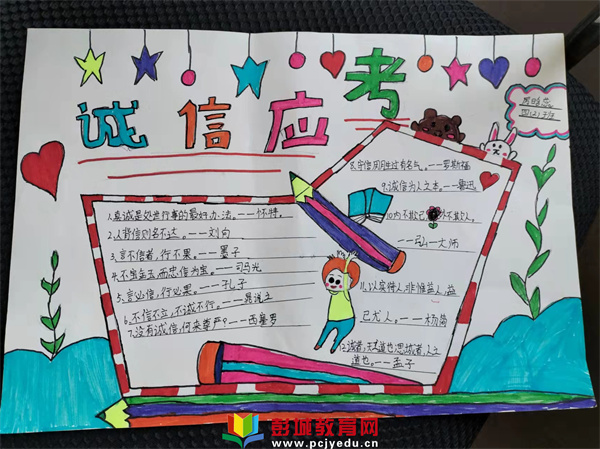 诚信应考
四(2)班
1.真诚是处世行事的最好办法。——怀特。
2.人背信则名不达。——刘向
3.言不信者,行不果。——墨子
4.不宝金玉,而忠信为宝。——司马光
5.言必信,行必果。——孔子
6.不信不立,不诚不行。——晁说之
7.没有诚信,何来尊严?——西塞罗
8.守信用胜过有名气。——罗斯福
9.诚信为人之本。——鲁迅
10.内不欺己,外不欺人。
——弘一大师
11.以实待人,非惟益人,益
己尤人。——杨简
12.诚者,天之道也;思诚者,人之
道也。——孟子
彭城教育网
www.pcjyedu.cn